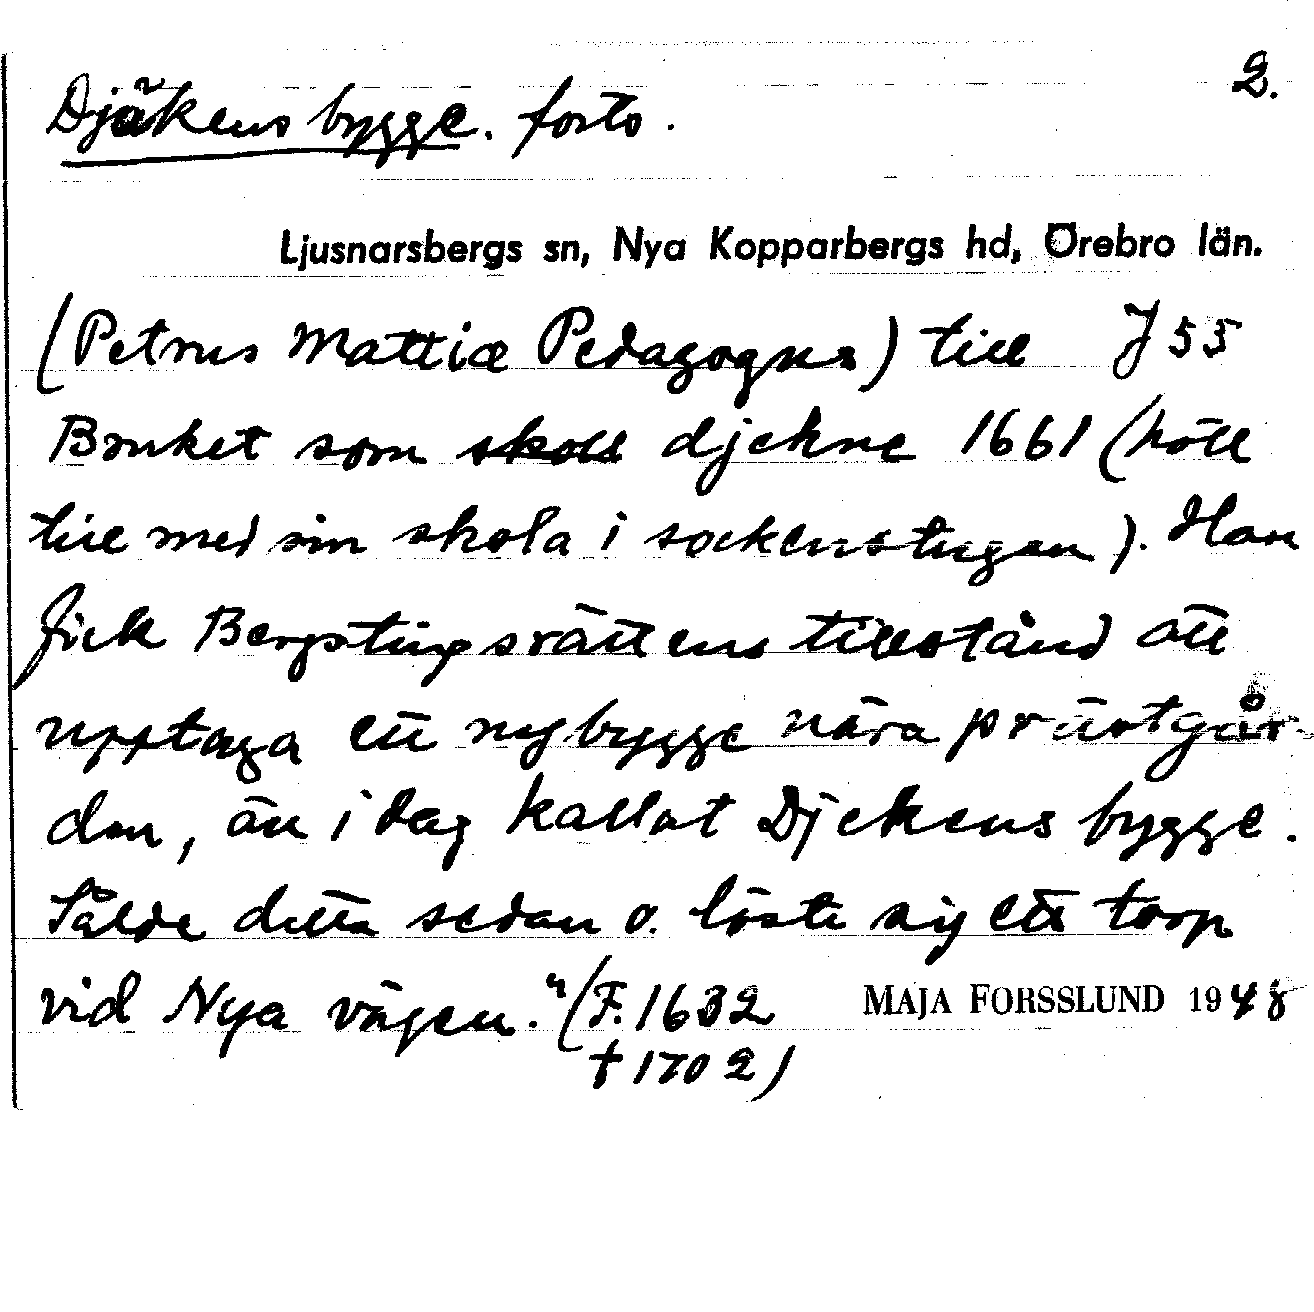 2.
Djäkens bygge. forts.
Ljusnarsbergs sn, Nya Kopparbergs hd, Örebro län.
(Petrus Mattiæ Pedagogus) till J 55
Bruket som skoll djekne 1661 (höll
till med sin skola i sockenstugan). Han
fick Bergstingsrättens tillstånd att
upptaga ett nybygge nära prästgår-
den, än i dag kallat Djekens bygge.
Sålde detta sedan o. löste sig ett torp
vid Nya vägen." (F. 1632
† 1702)
MAJA FORSSLUND 1948